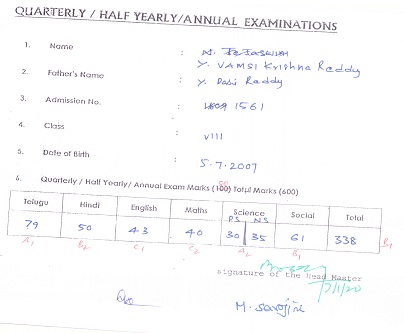 QUARTERLY / HALF YEARLY/ANNUAL EXAMINATIONS
1. Name :
Y. VAMSI Krishna Reddy
2. Father's Name : Y. Reddy
3. Admission No. : 1561
4. Class : VIII
5. Date of Birth : 5.7.2007
6. Quarterly / Half Yearly/ Annual Exam Marks (100) Total Marks (600)
Telugu Hindi English Maths Science Social Total
PS NS
79 50 43 40 30 35 61 338
A1 B2 C1 C2 A2 B1 B1
signature of the Head Master
7/1/20
M. Sarojini